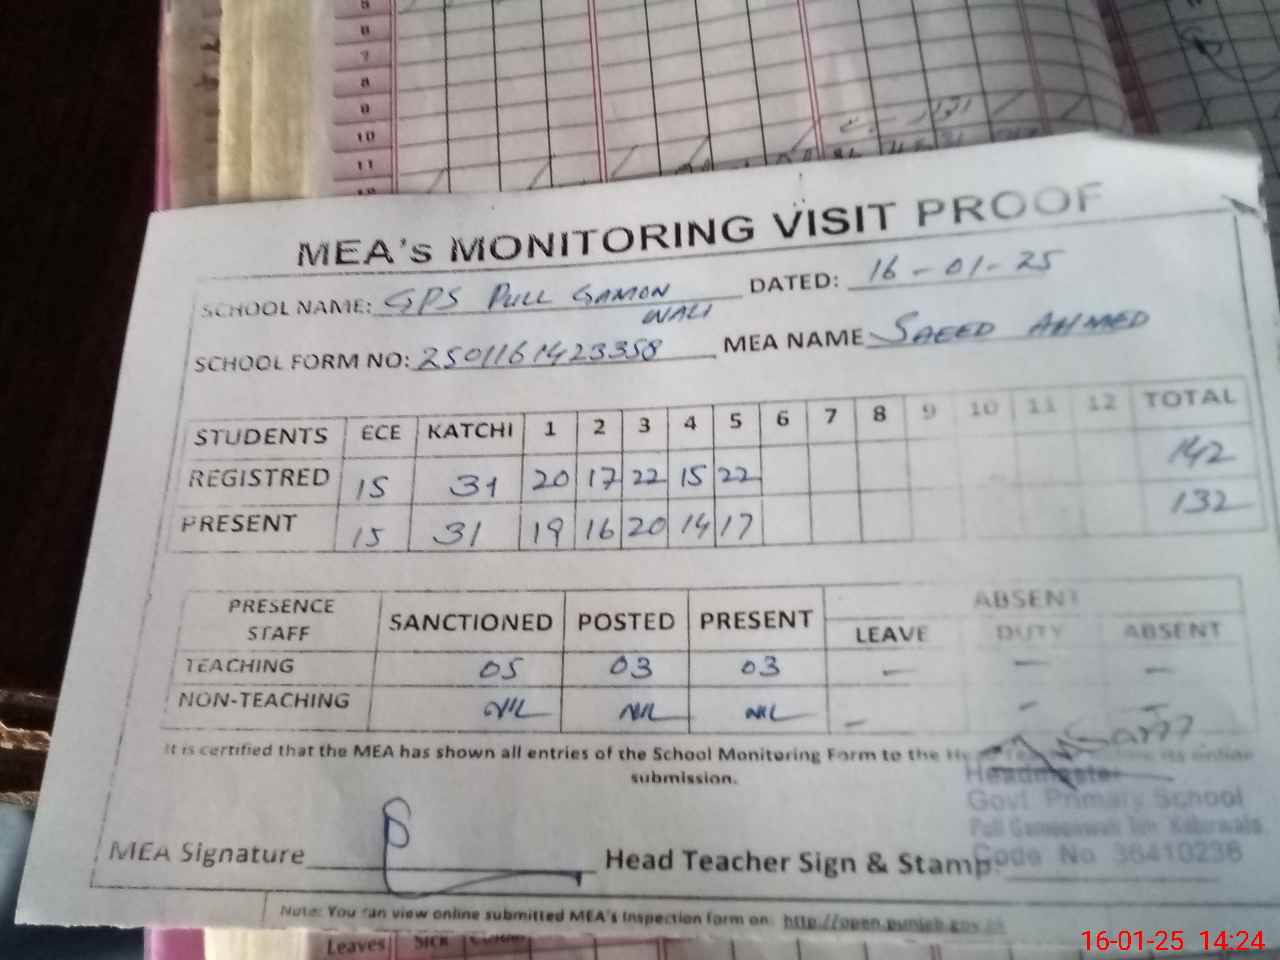 5
6
7
8
9
10
11
MEA's MONITORING VISIT PROOF
SCHOOL NAME: GPS PULL GAMON WALI DATED: 16-01-25
SCHOOL FORM NO: 2501161423358 MEA NAME SAEED AHMED
STUDENTS ECE KATCHI 1 2 3 4 5 6 7 8 9 10 11 12 TOTAL
REGISTRED 15 31 20 17 22 15 22 142
PRESENT 15 31 19 16 20 14 17 132
PRESENCE STAFF SANCTIONED POSTED PRESENT ABSENT
LEAVE DUTY ABSENT
TEACHING 05 03 03 — — —
NON-TEACHING NIL NIL NIL — — —
It is certified that the MEA has shown all entries of the School Monitoring Form to the online
submission.
Headmaster
Govt. Primary School
Pull
Code No 36410236
MEA Signature Head Teacher Sign & Stamp:
Note: You can view online submitted MEA's Inspection form on: http://open.punjab.gov.pk
Leaves Sick
16-01-25 14:24